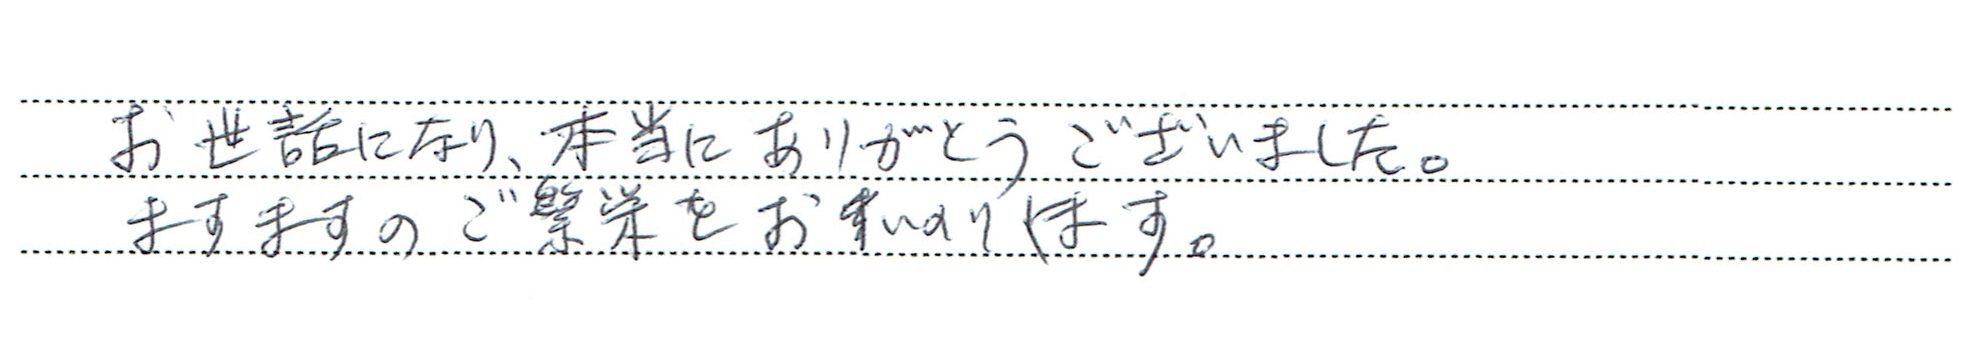 お世話になり、本当にありがとうございました。
ますますのご繁栄をおいのりします。